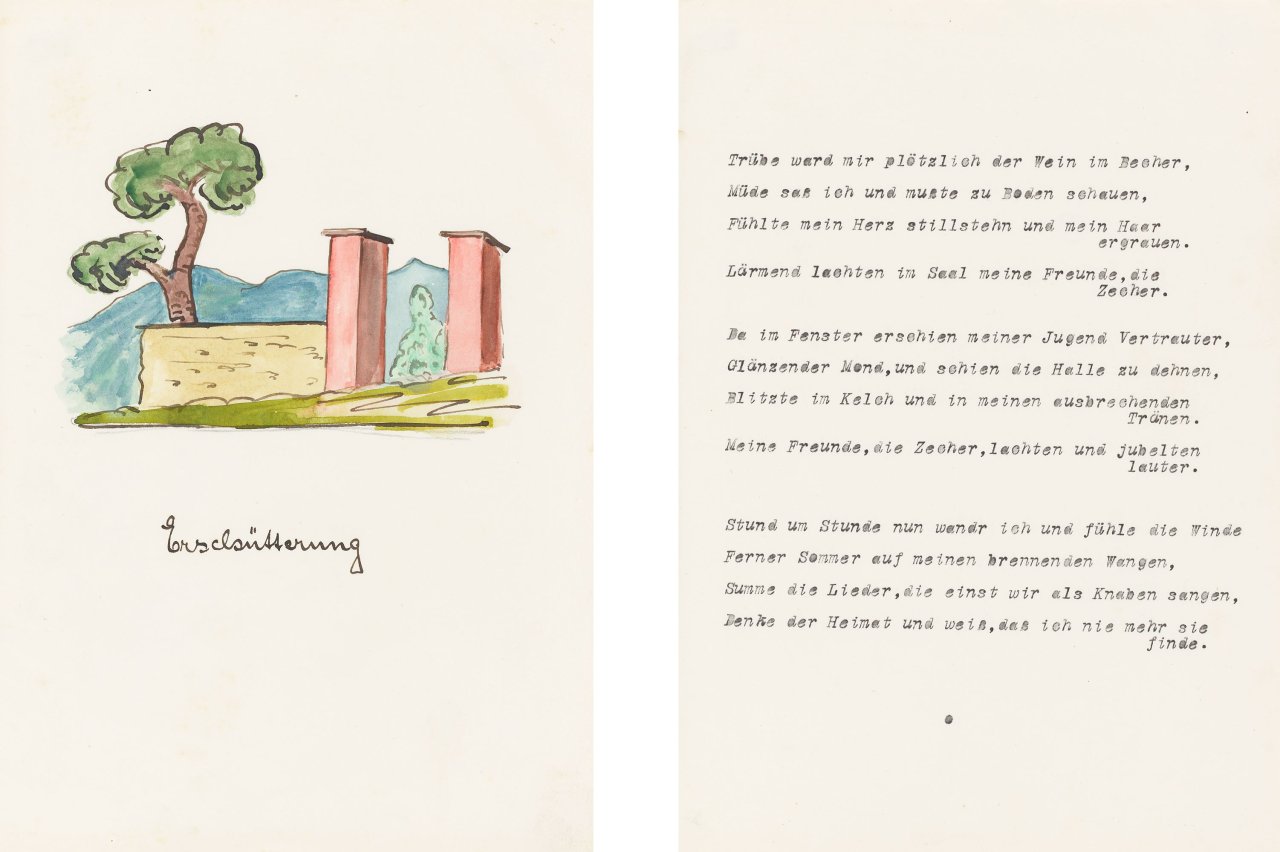 Erschütterung
Trübe ward mir plötzlich der Wein im Becher,
Müde saß ich und mußte zu Boden schauen,
Fühlte mein Herz stillstehn und mein Haar
ergrauen.
Lärmend lachten im Saal meine Freunde,die
Zecher.
Da im Fenster erschien meiner Jugend Vertrauter,
Glänzender Mond,und schien die Halle zu dehnen,
Blitzte im Kelch und in meinen ausbrechenden
Tränen.
Meine Freunde,die Zecher,lachten und jubelten
lauter.
Stund um Stunde nun wandr ich und fühle die Winde
Ferner Sommer auf meinen brennenden Wangen,
Summe die Lieder,die einst wir als Knaben sangen,
Denke der Heimat und weiß,daß ich nie mehr sie
finde.